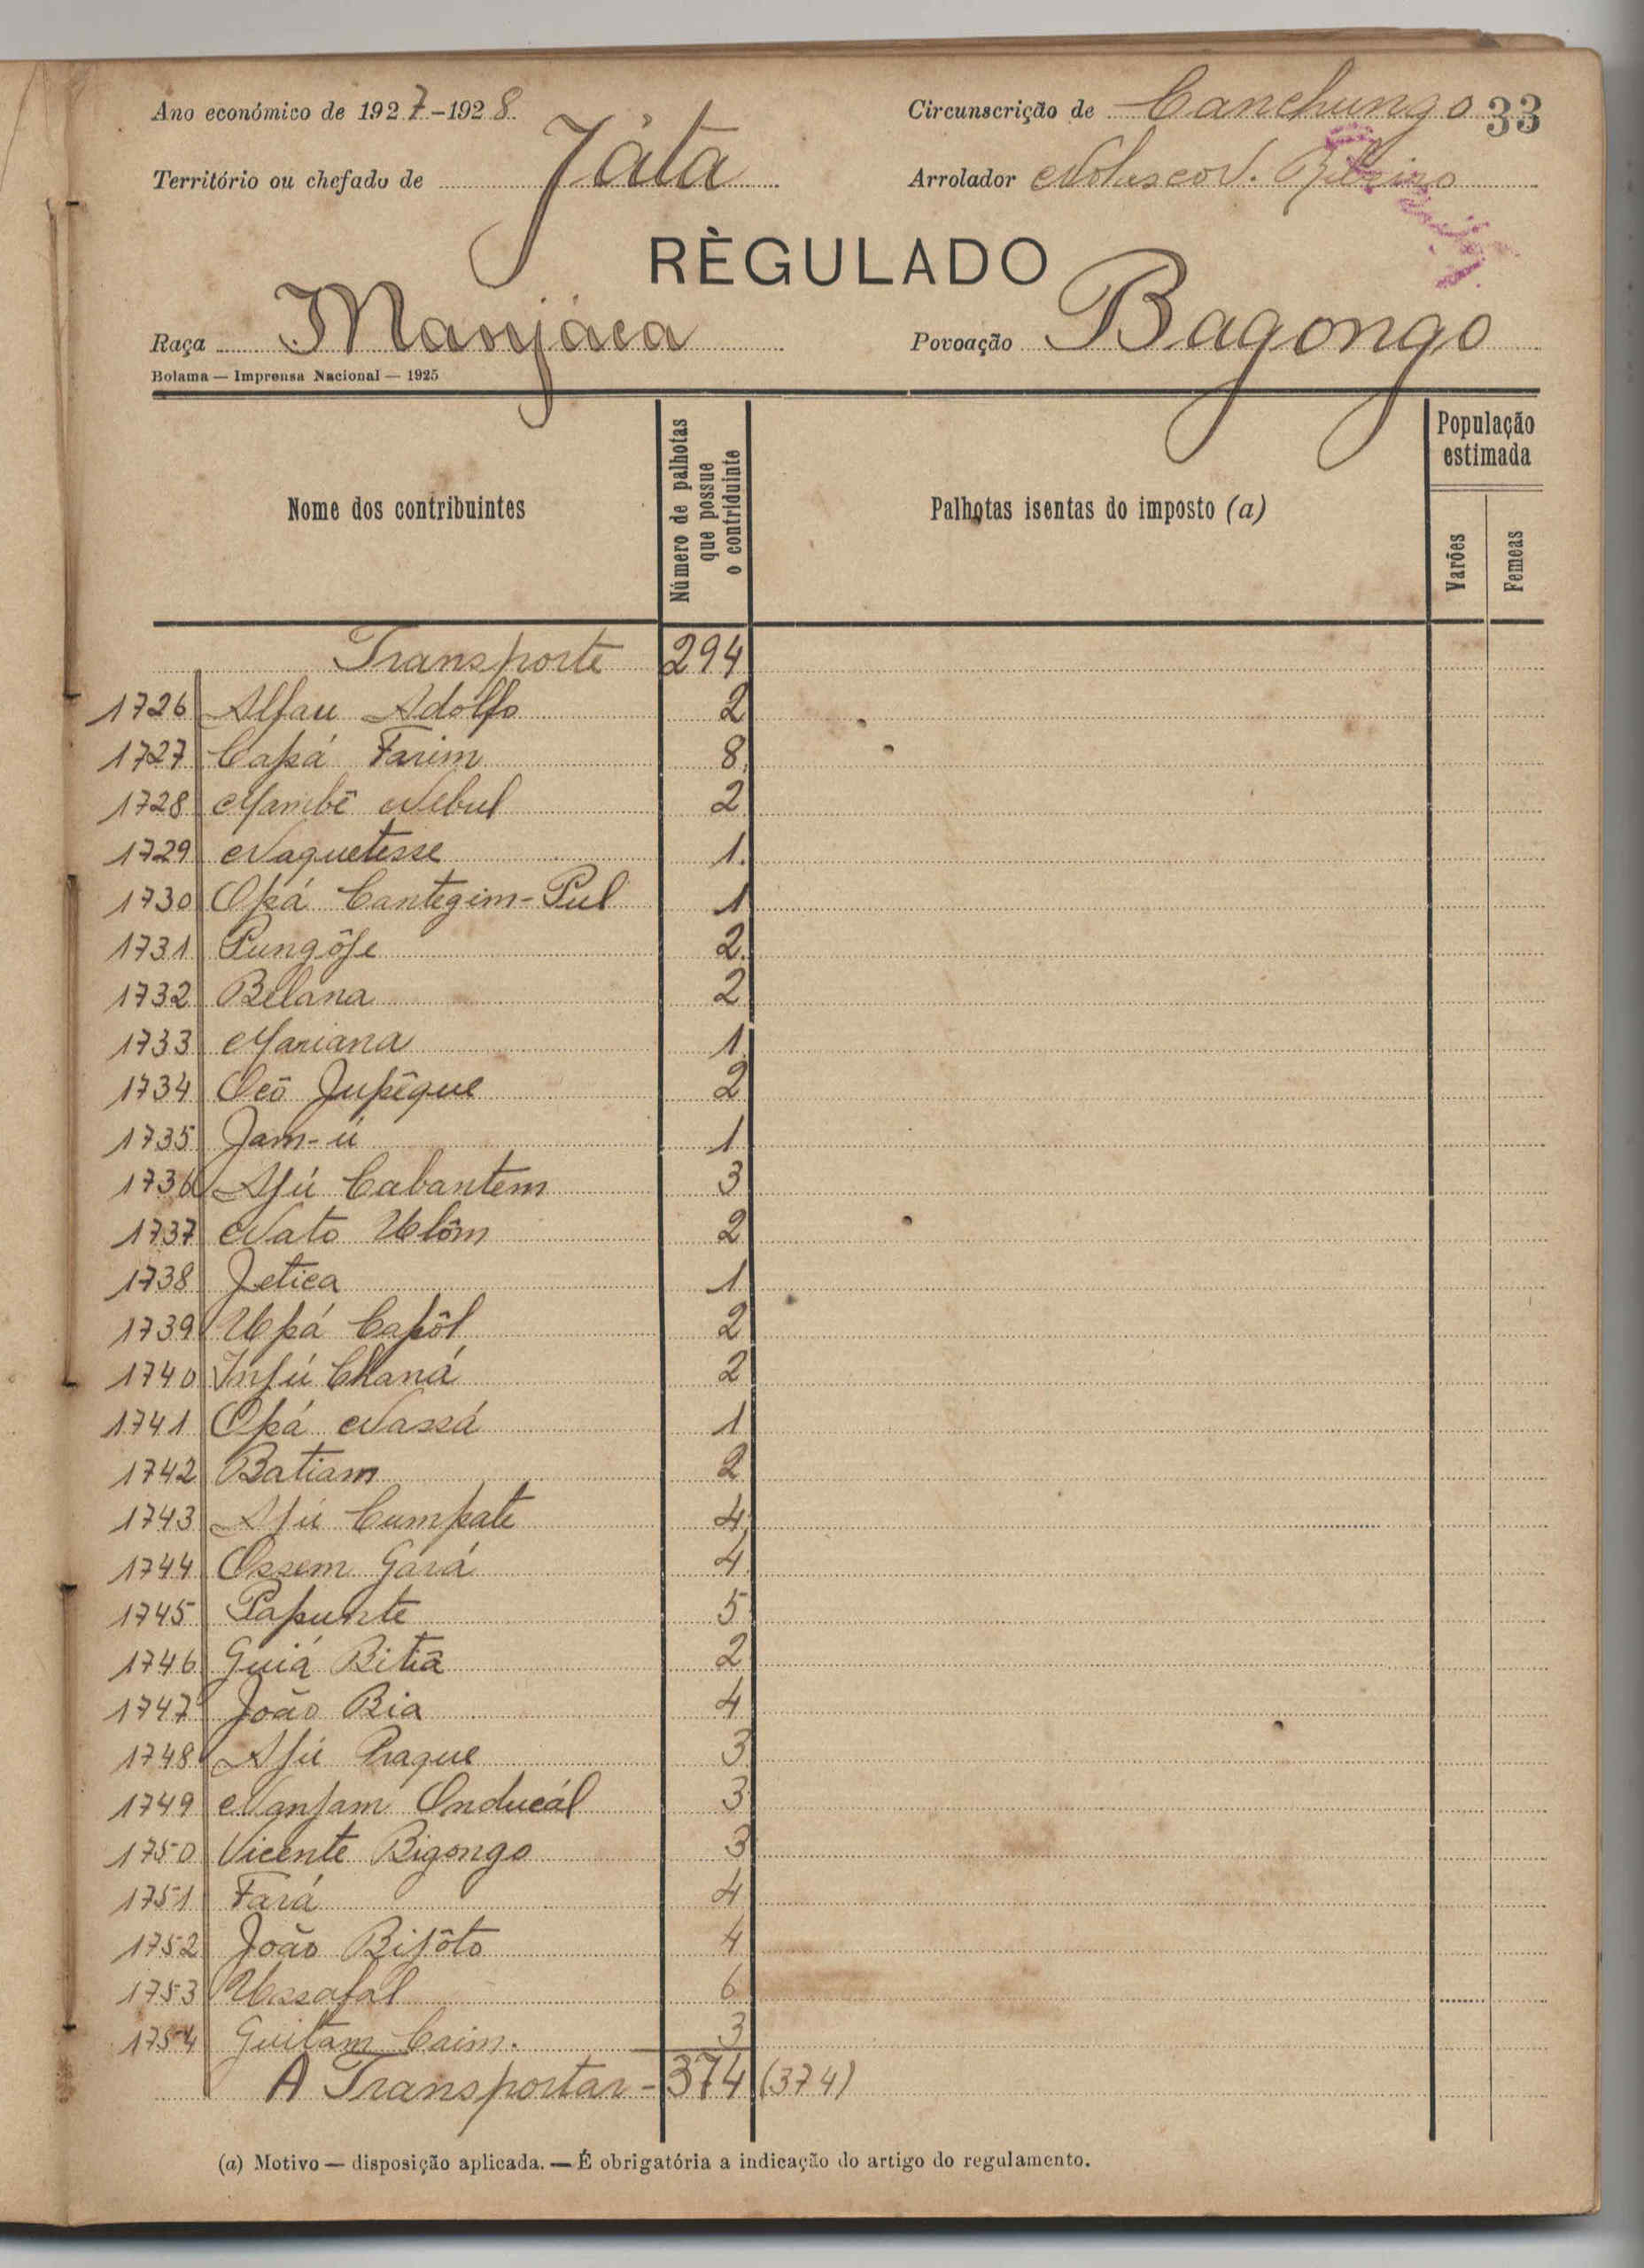 Ano económico de 1927-1928.
Circunscrição de Canchungo 33
Território ou chefado de Játa
Arrolador Nolasco V. Ribeiro
RÈGULADO
Raça Manjáca
Povoação Bagongo
Bolama — Imprensa Nacional — 1925
Nome dos contribuintes
Número de palhotas que possue o contriduinte
Palhotas isentas do imposto (a)
População estimada
Varões
Femeas
Transporte 294
1726 Alfau Adolfo 2
1727 Capá Farim 8
1728 Mambê Nebul 2
1729 Naquetesse 1
1730 Opá Cantegim-Pul 1
1731 Pungôfe 2
1732 Belana 2
1733 Mariana 1
1734 Ocô Jupêque 2
1735 Jam-ú 1
1736 Afú Cabantem 3
1737 Nato Ulôm 2
1738 Jetica 1
1739 Upá Capôl 2
1740 Infú Chaná 2
1741 Opá Nassá 1
1742 Batiam 2
1743 Afú Cumpate 4
1744 Ossem Gará 4
1745 Papunte 5
1746 Guiá Bitiã 2
1747 João Bia 4
1748 Afú Praque 3
1749 Nanfam Onducál 3
1750 Vicente Bigongo 3
1751 Fará 4
1752 João Bifôto 4
1753 Ussafal 6
1754 Guitam Caim. 3
A Transportar - 374 (374)
(a) Motivo — disposição aplicada. — É obrigatória a indicação do artigo do regulamento.